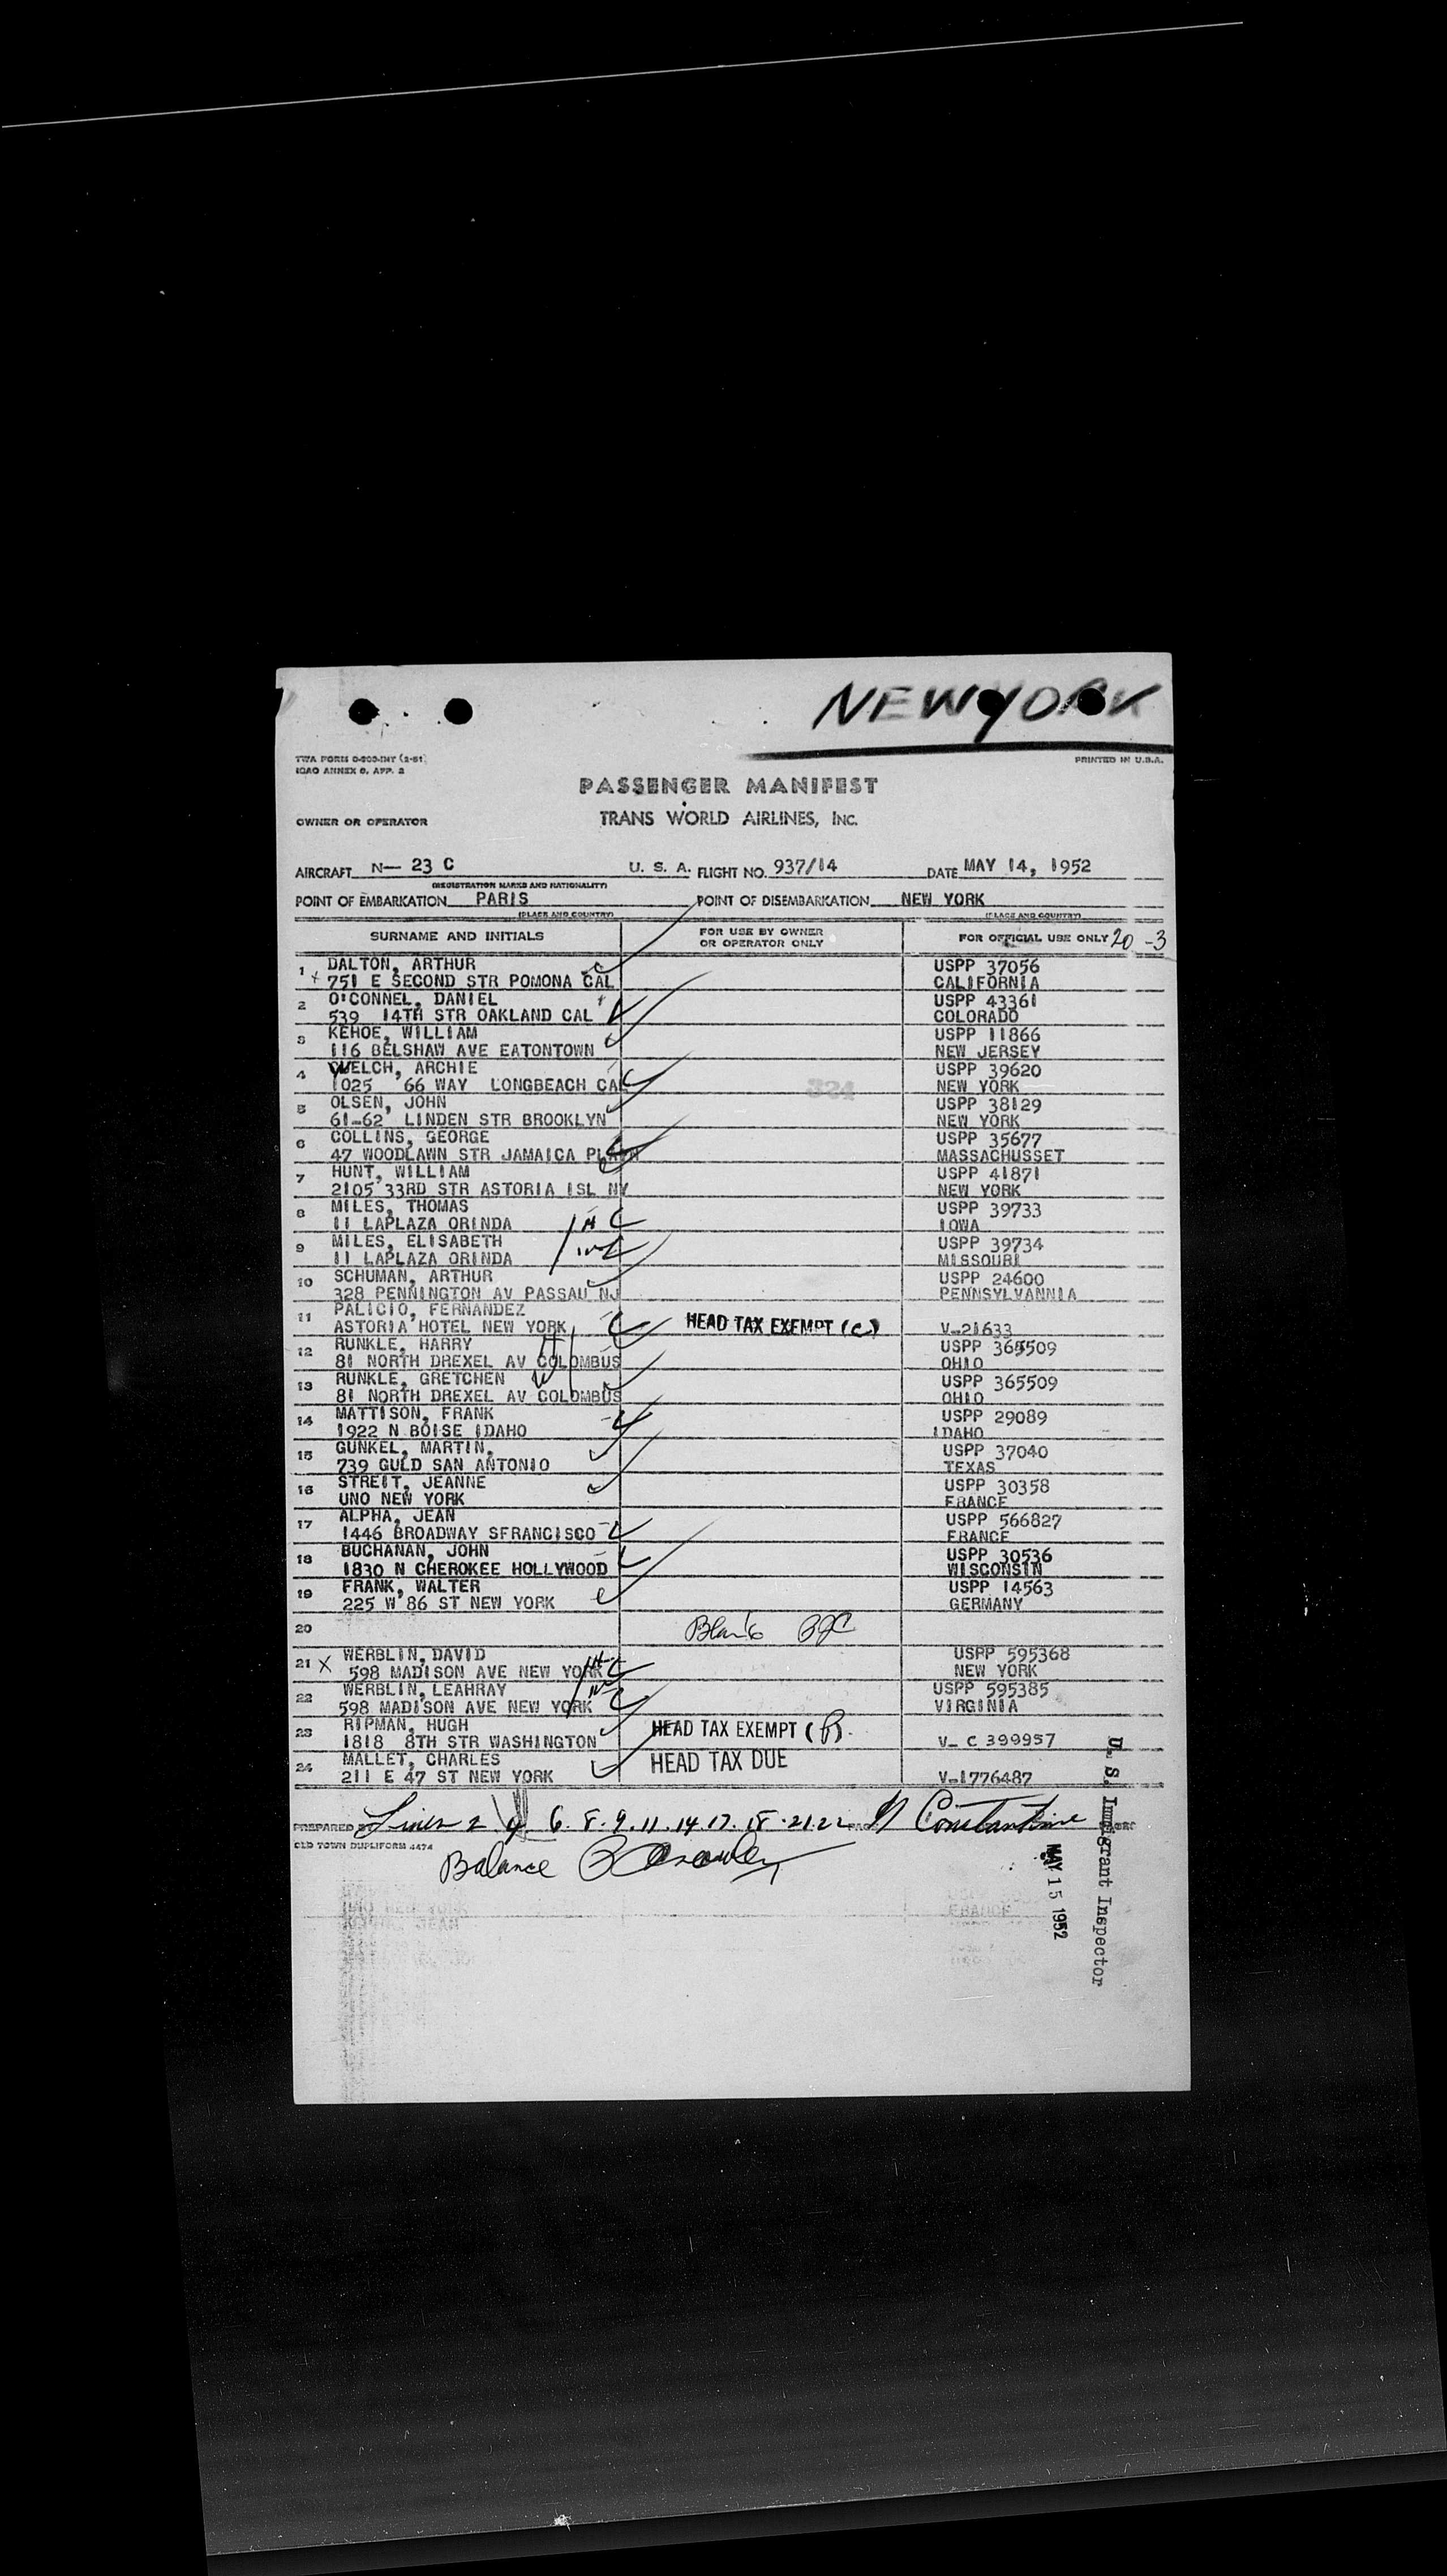 NEW YORK
TWA FORM O-200-INT (2-51)
ICAO ANNEX 9, APP. 2
PRINTED IN U.S.A.
PASSENGER MANIFEST
OWNER OR OPERATOR TRANS WORLD AIRLINES, INC.
AIRCRAFT N— 23 C U. S. A. FLIGHT NO. 937/14 DATE MAY 14, 1952
(REGISTRATION MARKS AND NATIONALITY)
POINT OF EMBARKATION PARIS POINT OF DISEMBARKATION NEW YORK
(PLACE AND COUNTRY) (PLACE AND COUNTRY)
SURNAME AND INITIALS FOR USE BY OWNER OR OPERATOR ONLY FOR OFFICIAL USE ONLY 20 -3
1 DALTON, ARTHUR USPP 37056
751 E SECOND STR POMONA CAL CALIFORNIA
2 O'CONNEL, DANIEL USPP 43361
539 14TH STR OAKLAND CAL COLORADO
3 KEHOE, WILLIAM USPP 11866
116 BELSHAW AVE EATONTOWN NEW JERSEY
4 WELCH, ARCHIE USPP 39620
1025 66 WAY LONGBEACH CAL 324 NEW YORK
5 OLSEN, JOHN USPP 38129
61-62 LINDEN STR BROOKLYN NEW YORK
6 COLLINS, GEORGE USPP 35677
47 WOODLAWN STR JAMAICA PLAIN MASSACHUSSET
7 HUNT, WILLIAM USPP 41871
2105 33RD STR ASTORIA ISL NY NEW YORK
8 MILES, THOMAS USPP 39733
11 LAPLAZA ORINDA H C IOWA
9 MILES, ELISABETH USPP 39734
11 LAPLAZA ORINDA W C MISSOURI
10 SCHUMAN, ARTHUR USPP 24600
328 PENNINGTON AV PASSAU NJ PENNSYLVANNIA
11 PALICIO, FERNANDEZ
ASTORIA HOTEL NEW YORK HEAD TAX EXEMPT (C) V-21633
12 RUNKLE, HARRY H USPP 365509
81 NORTH DREXEL AV COLOMBUS OHIO
13 RUNKLE, GRETCHEN W USPP 365509
81 NORTH DREXEL AV COLOMBUS OHIO
14 MATTISON, FRANK USPP 29089
1922 N BOISE IDAHO IDAHO
15 GUNKEL, MARTIN, USPP 37040
739 GULD SAN ANTONIO TEXAS
16 STREIT, JEANNE USPP 30358
UNO NEW YORK FRANCE
17 ALPHA, JEAN USPP 566827
1446 BROADWAY SFRANCISCO FRANCE
18 BUCHANAN, JOHN USPP 30536
1830 N CHEROKEE HOLLYWOOD WISCONSIN
19 FRANK, WALTER USPP 14563
225 W 86 ST NEW YORK GERMANY
20 Blank
21 X WERBLIN, DAVID USPP 595368
598 MADISON AVE NEW YORK H C NEW YORK
22 WERBLIN, LEAHRAY USPP 595385
598 MADISON AVE NEW YORK W C VIRGINIA
23 RIPMAN, HUGH
1818 8TH STR WASHINGTON HEAD TAX EXEMPT (B) V- C 399957
24 MALLET, CHARLES HEAD TAX DUE
211 E 47 ST NEW YORK V-1776487
PREPARED BY Lines 2 4 6. 8. 9. 11. 14. 17. 18. 21. 22 N Constantine
OLD TOWN DUPLIFORM 4474
Balance
MAY 15 1952
U. S. Immigrant Inspector